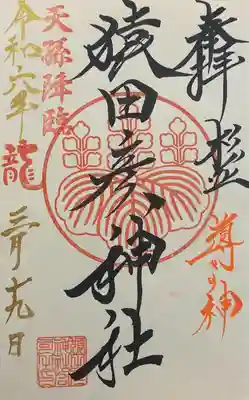 奉拝
導きの神
猿田彦神社
天孫降臨
令和六年
龍
三月十九日